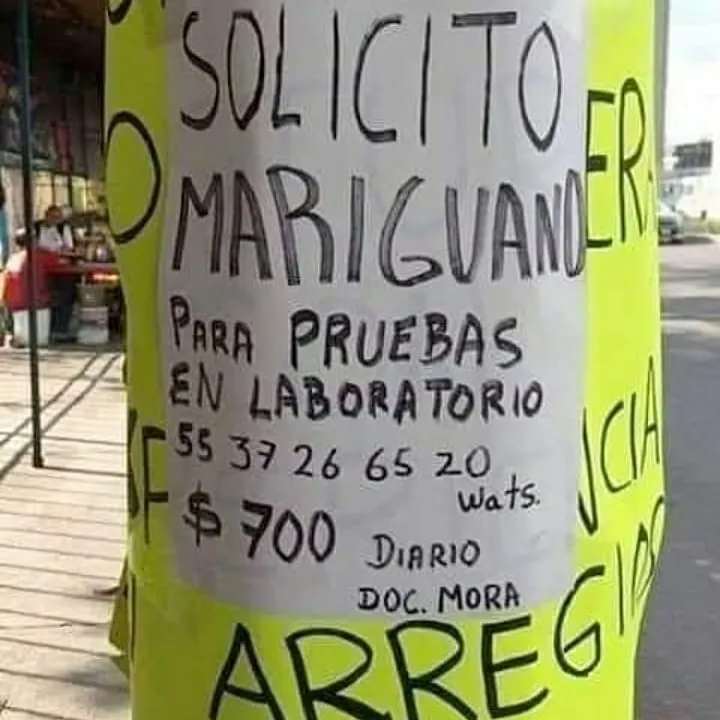 SOLICITO
MARIGUANO
PARA PRUEBAS
EN LABORATORIO
55 37 26 65 20
Wats.
$ 700 DIARIO
DOC. MORA
ARREGLO